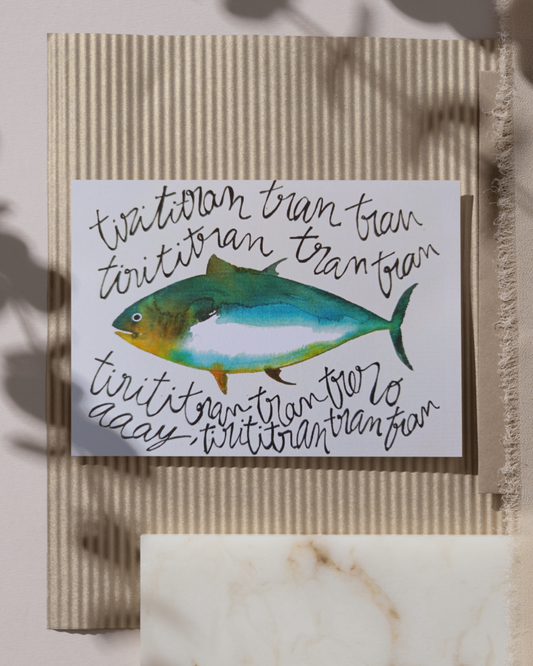 tirititran tran tran
tirititran tran tran
tirititran tran trero
aaay, tirititran tran tran